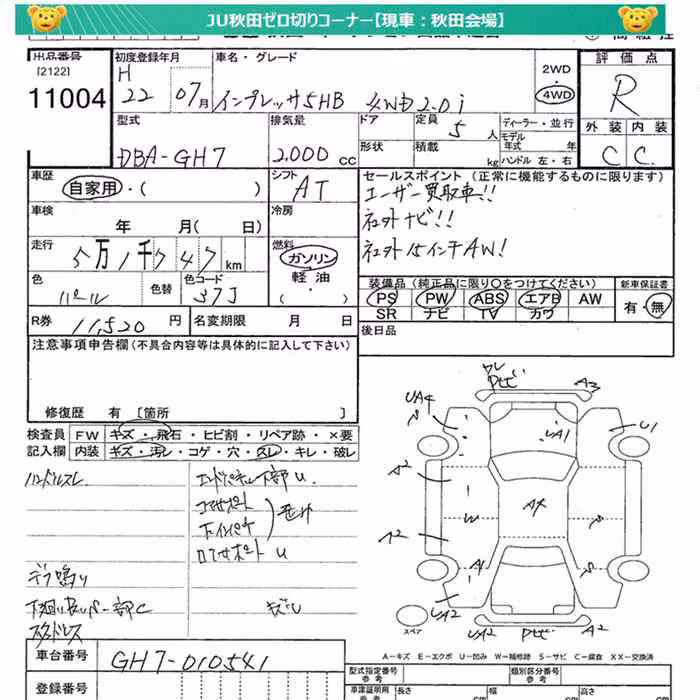 JU秋田ゼロ切りコーナー【現車：秋田会場】
出品番号
[2122]
11004
初度登録年月
H
22 07月
車名・グレード
インプレッサ5HB 4WD 2.0i
2WD
4WD
評価点
R
外装 内装
C C
型式
DBA-GH7
排気量
2.000 cc
ドア
形状
定員 5 人
積載 kg
ディーラー・並行
モデル
年式 年
ハンドル 左・右
車歴
自家用・( )
シフト
AT
車検
年 月( 日)
冷房
走行
5万1千747 km
燃料
ガソリン
軽油
( )
色
パール
色替
色コード
37J
R券 11,520 円
名変期限 月 日
セールスポイント (正常に機能するものに限ります)
ユーザー買取車!!
社外ナビ!!
社外15インチAW!
装備品 (純正品に限り○をつけてください)
PS PW ABS エアB AW
SR ナビ TV カワ
新車保証書
有・無
後日品
注意事項申告欄 (不具合内容等は具体的に記入して下さい)
修復歴 有 [箇所 ]
検査員
記入欄
FW キズ・飛石・ヒビ割・リペア跡・×要
内装 キズ・汚レ・コゲ・穴・スレ・キレ・破レ
ハンドルスレ
エンドパネル下部U
コアサポート
ロアサポートU
デフ鳴り
スタッドレス
UA4
A3
UA1
U1
A2
W
A4
S
A2
A4
S
UA2
UA2
A2
スペア
A－キズ E－エクボ U－凹み W－補修跡 S－サビ C－腐食 XX－交換済
車台番号
GH7-010541
登録番号
型式指定番号
参考
類別区分番号
参考
車庫証明用
参考
長さ cm
幅 cm
高さ cm